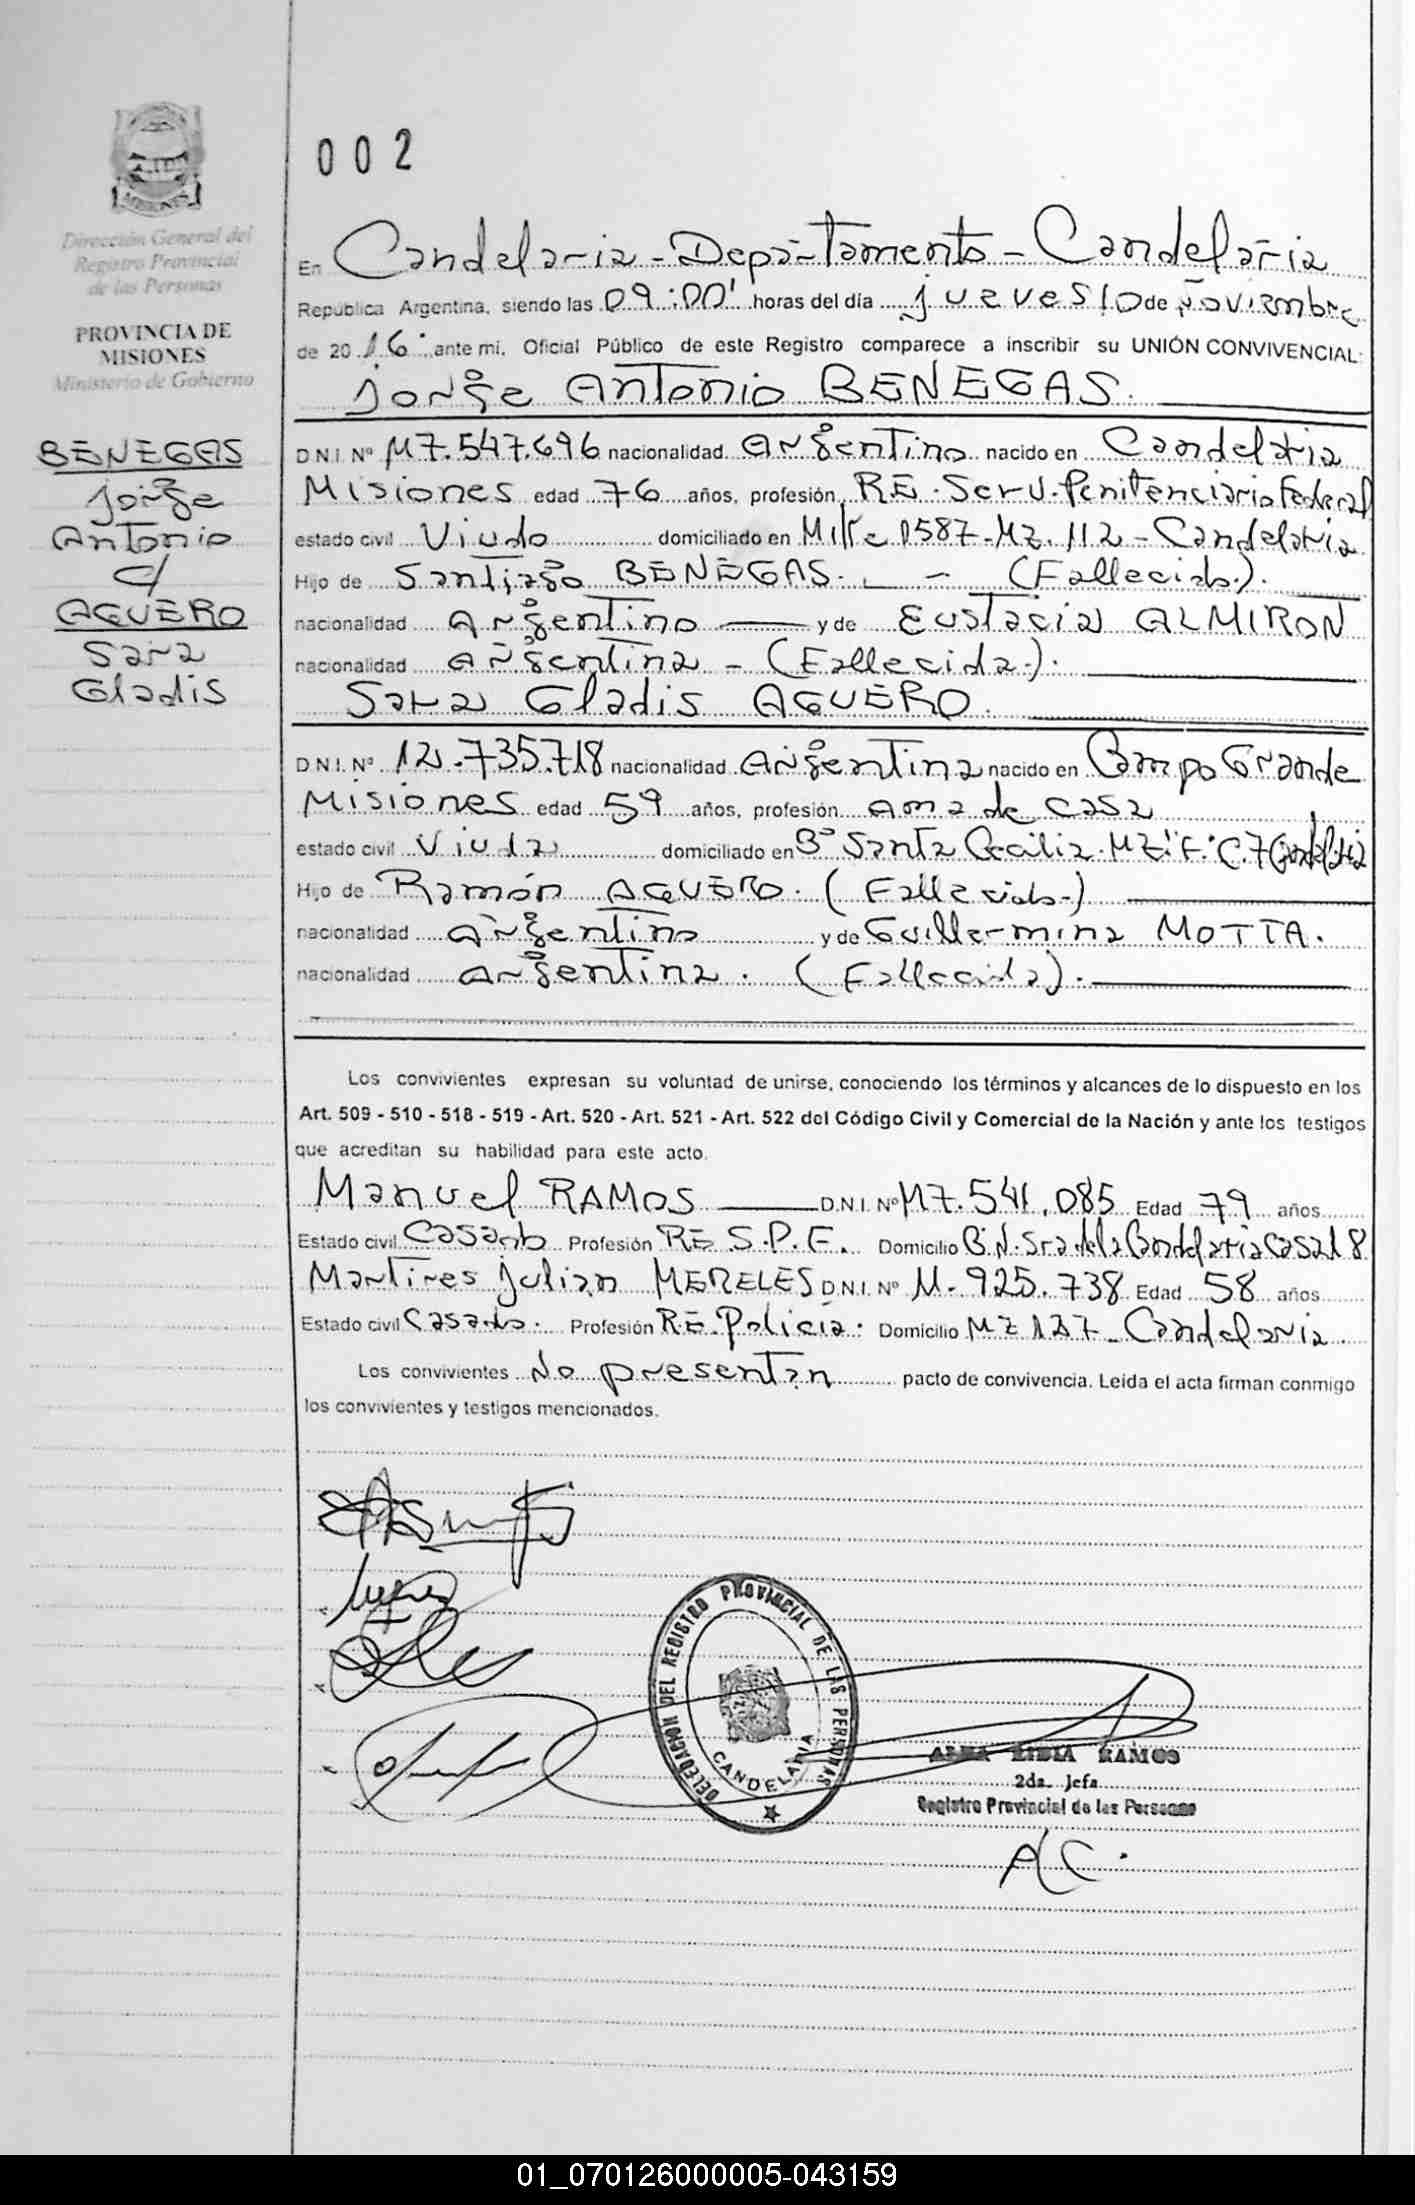 002
Dirección General del
Registro Provincial
de las Personas
PROVINCIA DE
MISIONES
Ministerio de Gobierno
BENEGAS
Jorge
Antonio
c/
AGUERO
Sara
Gladis
En Candelaria - Departamento - Candelaria
República Argentina, siendo las 09:00' horas del día jueves 10 de Noviembre
de 2016. ante mi, Oficial Público de este Registro comparece a inscribir su UNIÓN CONVIVENCIAL:
Jorge Antonio BENEGAS.
D.N.I. Nº M7.547.696 nacionalidad Argentino nacido en Candelaria
Misiones edad 76 años, profesión RE. Serv. Penitenciario Federal
estado civil Viudo domiciliado en Mz. 112 - Candelaria
Hijo de Santiago BENEGAS. - (Fallecido).
nacionalidad Argentino y de Eustacia ALMIRON
nacionalidad Argentina - (Fallecida.).
Sara Gladis AGUERO.
D.N.I. Nº 12.735.718 nacionalidad Argentina nacido en Campo Grande
Misiones edad 59 años, profesión ama de casa
estado civil Viuda domiciliado en Bº Santa Cecilia. MZ "F" C.7 Candelaria
Hijo de Ramón AGUERO. (Fallecido.)
nacionalidad Argentino y de Guillermina MOTTA.
nacionalidad Argentina. (Fallecida).
Los convivientes expresan su voluntad de unirse, conociendo los términos y alcances de lo dispuesto en los
Art. 509 - 510 - 518 - 519 - Art. 520 - Art. 521 - Art. 522 del Código Civil y Comercial de la Nación y ante los testigos
que acreditan su habilidad para este acto.
Manuel RAMOS D.N.I. Nº M7.541.085 Edad 79 años
Estado civil Casado Profesión RE S.P.F. Domicilio Sra de la Candelaria Casa 18
Martires Julian MERELES D.N.I. Nº M. 925.738 Edad 58 años
Estado civil Casado. Profesión RE. Policia. Domicilio MZ 127 - Candelaria.
Los convivientes No presentan pacto de convivencia. Leida el acta firman conmigo
los convivientes y testigos mencionados.
DELEGACION DEL REGISTRO PROVINCIAL DE LAS PERSONAS
CANDELARIA
ALBA LIDIA RAMOS
2da. Jefa
Registro Provincial de las Personas
AC.
01_070126000005-043159